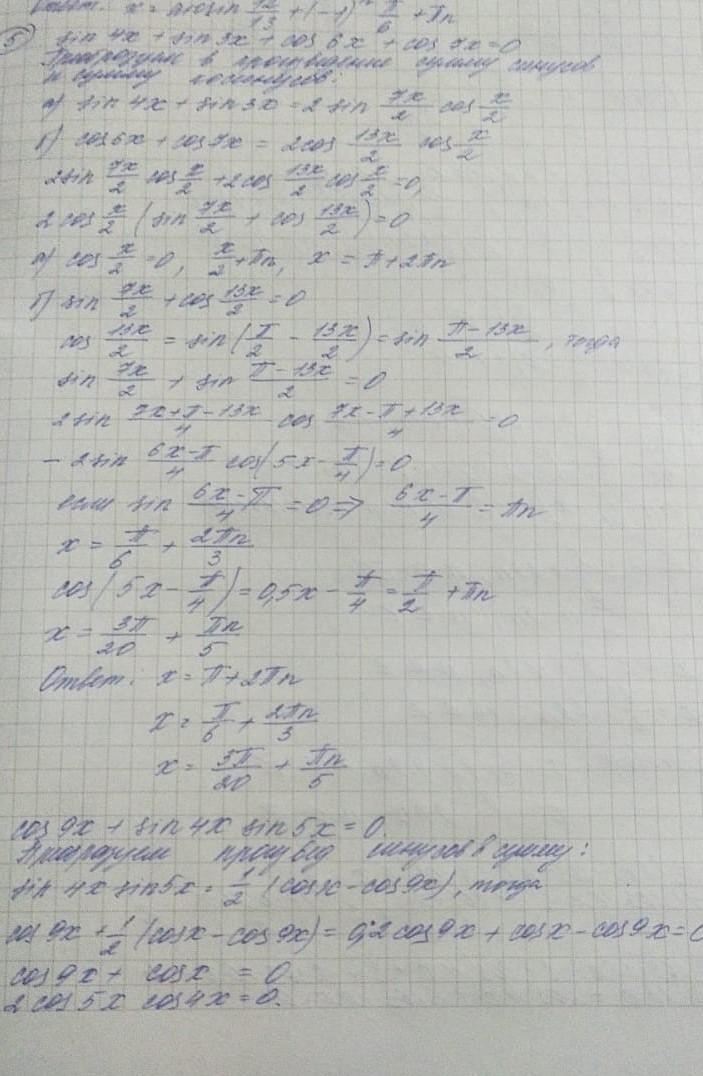 Ответ: x = arcsin 12/13 + (-1)ⁿ π/6 + πn
5) sin 4x + sin 3x + cos 6x + cos 7x = 0
Преобразуем в произведение сумму синусов
и сумму косинусов:
а) sin 4x + sin 3x = 2 sin 7x/2 cos x/2
б) cos 6x + cos 7x = 2 cos 13x/2 cos x/2
2 sin 7x/2 cos x/2 + 2 cos 13x/2 cos x/2 = 0,
2 cos x/2 (sin 7x/2 + cos 13x/2) = 0
а) cos x/2 = 0, x/2 + πn, x = π + 2πn
б) sin 7x/2 + cos 13x/2 = 0
cos 13x/2 = sin (π/2 - 13x/2) = sin (π - 13x)/2, тогда
sin 7x/2 + sin (π - 13x)/2 = 0
2 sin (7x + π - 13x)/4 cos (7x - π + 13x)/4 = 0
- 2 sin (6x - π)/4 cos (5x - π/4) = 0
если sin (6x - π)/4 = 0 ⇒ (6x - π)/4 = πn
x = π/6 + 2πn/3
cos (5x - π/4) = 0, 5x - π/4 = π/2 + πn
x = 3π/20 + πn/5
Ответ: x = π + 2πn
x = π/6 + 2πn/3
x = 3π/20 + πn/5
cos 9x + sin 4x sin 5x = 0.
Преобразуем произвед синусов в сумму:
sin 4x sin 5x = 1/2 (cos x - cos 9x), тогда
cos 9x + 1/2 (cos x - cos 9x) = 0; 2 cos 9x + cos x - cos 9x = 0
cos 9x + cos x = 0
2 cos 5x cos 4x = 0.